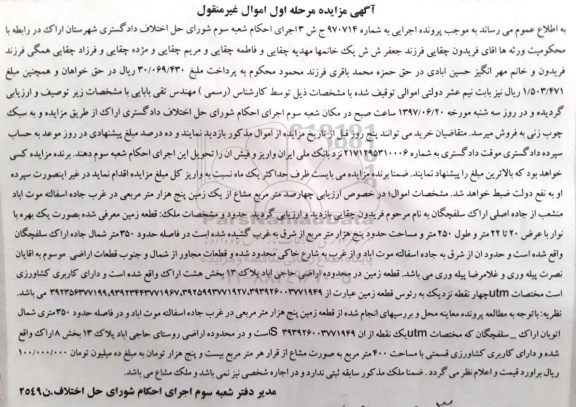 آگهی مزایده مرحله اول اموال غیرمنقول
به اطلاع عموم می رساند به موجب پرونده اجرایی به شماره ۹۷۰۷۱۴ ج ش ۳ اجرای احکام شعبه سوم شورای حل اختلاف دادگستری شهرستان اراک در رابطه با
محکومیت ورثه ها اقای فریدون چقایی فرزند جعفر ش ش یک خانمها مهدیه چقایی و فاطمه چقایی و مریم چقایی و مژده چقایی و فرزاد چقایی همگی فرزند
فریدون و خانم مهر انگیز حسین ابادی در حق حمزه محمد باقری فرزند محمود محکوم به پرداخت مبلغ ۳۰/۰۶۹/۴۳۰ ریال در حق خواهان و همچنین مبلغ
۱/۵۰۳/۴۷۱ ریال نیز بابت نیم عشر دولتی اموالی توقیف شده با مشخصات ذیل توسط کارشناس (رسمی) مهندس تقی بابایی با مشخصات زیر توصیف و ارزیابی
گردیده و در روز سه شنبه مورخه ۱۳۹۷/۰۶/۲۰ ساعت صبح در مکان شعبه سوم اجرای احکام شورای حل اختلاف دادگستری اراک از طریق مزایده و به سبک
چوب زنی به فروش میرسد. متقاضیان خرید می توانند پنج روز قبل از تاریخ مزایده از اموال مذکور بازدید نمایند و ده درصد مبلغ پیشنهادی در روز موعد به حساب
سپرده دادگستری موقت دادگستری به شماره ۲۱۷۱۲۹۵۳۱۰۰۰۶ نزد بانک ملی ایران واریز و فیش ان را تحویل این اجرای احکام شعبه سوم دهند. برنده مزایده کسی
خواهد بود که بالاترین مبلغ را پیشنهاد نمایند. ضمنا برنده مزایده می بایست ظرف حداکثر یک ماه نسبت به واریز کل مبلغ مزایده اقدام نماید در غیر اینصورت سپرده
او به نفع دولت ضبط خواهد شد. مشخصات اموال: در خصوص ارزیابی چهارصد متر مربع مشاع از یک زمین پنج هزار متر مربعی در غرب جاده اسفالته موت اباد
منشعب از جاده اصلی اراک سلفچگان به نام مرحوم فریدون چقایی بازدید و ارزیابی گردید. حدود و مشخصات ملک: قطعه زمین معرفی شده بصورت یک بهره با
نوار با عرض ۲۰ تا ۲۲ متر و طول ۲۵۰ متر و مساحت حدود پنج هزار متر مربع از شرق به غرب گشیده شده است در فاصله حدود ۳۵۰ متر شمال جاده اراک سلفچگان
واقع شده است و حدود ان از شرق به جاده اسفالته موت اباد و از غرب به شارع خاکی محدود شده و قطعات مجاور از شمال و جنوب قطعات اراضی موسوم به اقایان
نصرت پیله وری و غلامرضا پیله وری می باشد. قطعه زمین در محدوده اراضی حاجی اباد پلاک ۱۳ بخش هشت اراک واقع شده است و دارای کاربری کشاورزی
است مختصات utm چهار نقطه نزدیک به رئوس قطعه زمین عبارت از
نظریه: باتوجه به مطالعه پرونده معاینه محل و بررسیهای انجام شده از قطعه زمین پنج هزار متر مربعی در غرب جاده اسفالته موت اباد و در فاصله حدود ۳۵۰ متری شمال
اتوبان اراک _ سلفچگان که مختصات utm یک نقطه از ان ۳۹۳۹۲۶۰۰۳۷۷۱۹۴۹ S است و در محدوده اراضی روستای حاجی اباد پلاک ۱۳ بخش ۸ اراک واقع
شده و دارای کاربری کشاورزی قسمتی با مساحت ۴۰۰ متر مربع به صورت مشاع از قرار هر متر مربع بیست و پنج هزار تومان به مبلغ ده میلیون تومان ۱۰۰/۰۰۰/۰۰۰
ریال براورد قیمت و اعلام نظر می گردد. ضمنا ملک مذکور سابقه ثبتی ندارد و در اجاره شخصی نیز نمی باشد و ملک مشاع می باشد.
مدیر دفتر شعبه سوم اجرای احکام شورای حل اختلاف.ن۲۵۴۹